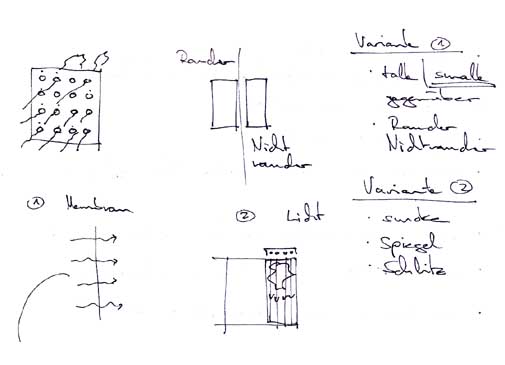 Raucher
Nicht
raucher
Variante ①
· talk | smalk
gegenüber
· Raucher
Nichtraucher
① Membran
② Licht
Variante ②
· smoke
· Spiegel
· Schlitz